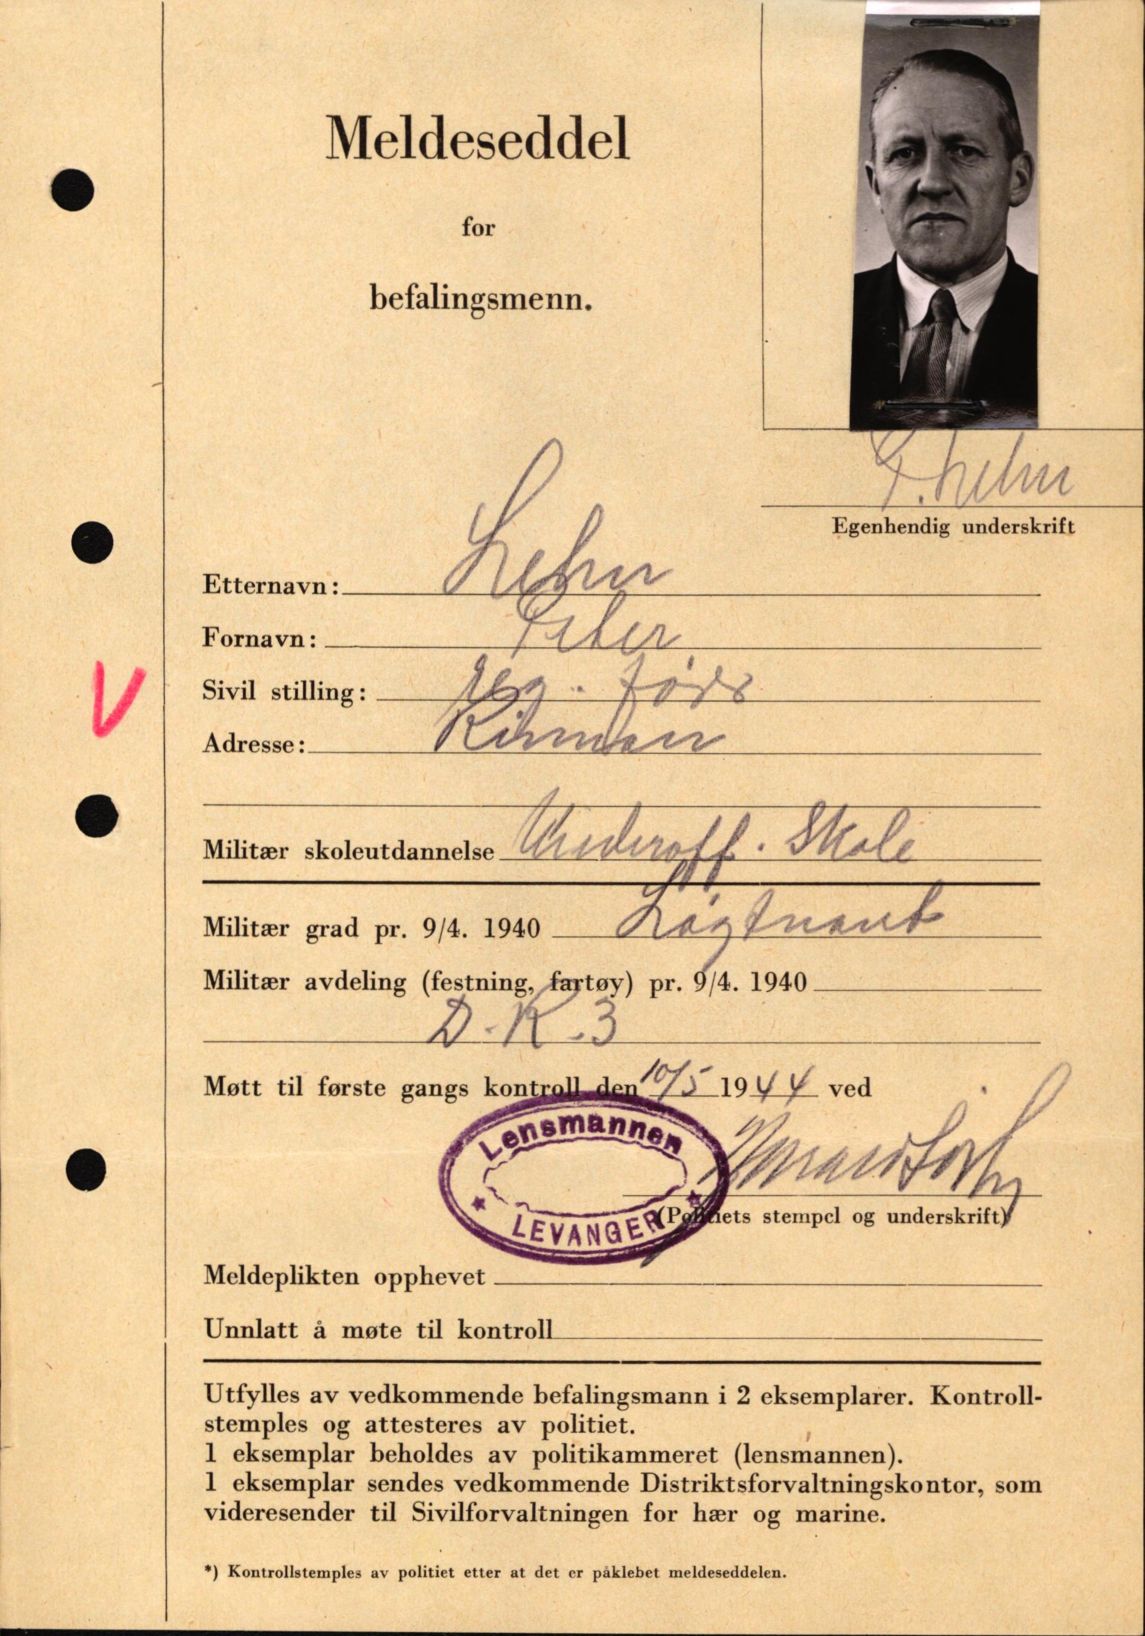 Meldeseddel
for
befalingsmenn.
P. Lehn
Egenhendig underskrift
Etternavn: Lehn
Fornavn: Peter
Sivil stilling: reg. förer
Adresse: Rinnan
Militær skoleutdannelse Underoff. Skole
Militær grad pr. 9/4. 1940 Løytnant
Militær avdeling (festning, fartøy) pr. 9/4. 1940
D.K.3
Møtt til første gangs kontroll den 10/5 1944 ved
Lensmannen
LEVANGER
(Politiets stempel og underskrift)
Meldeplikten opphevet
Unnlatt å møte til kontroll
Utfylles av vedkommende befalingsmann i 2 eksemplarer. Kontroll-
stemples og attesteres av politiet.
1 eksemplar beholdes av politikammeret (lensmannen).
1 eksemplar sendes vedkommende Distriktsforvaltningskontor, som
videresender til Sivilforvaltningen for hær og marine.
*) Kontrollstemples av politiet etter at det er påklebet meldeseddelen.